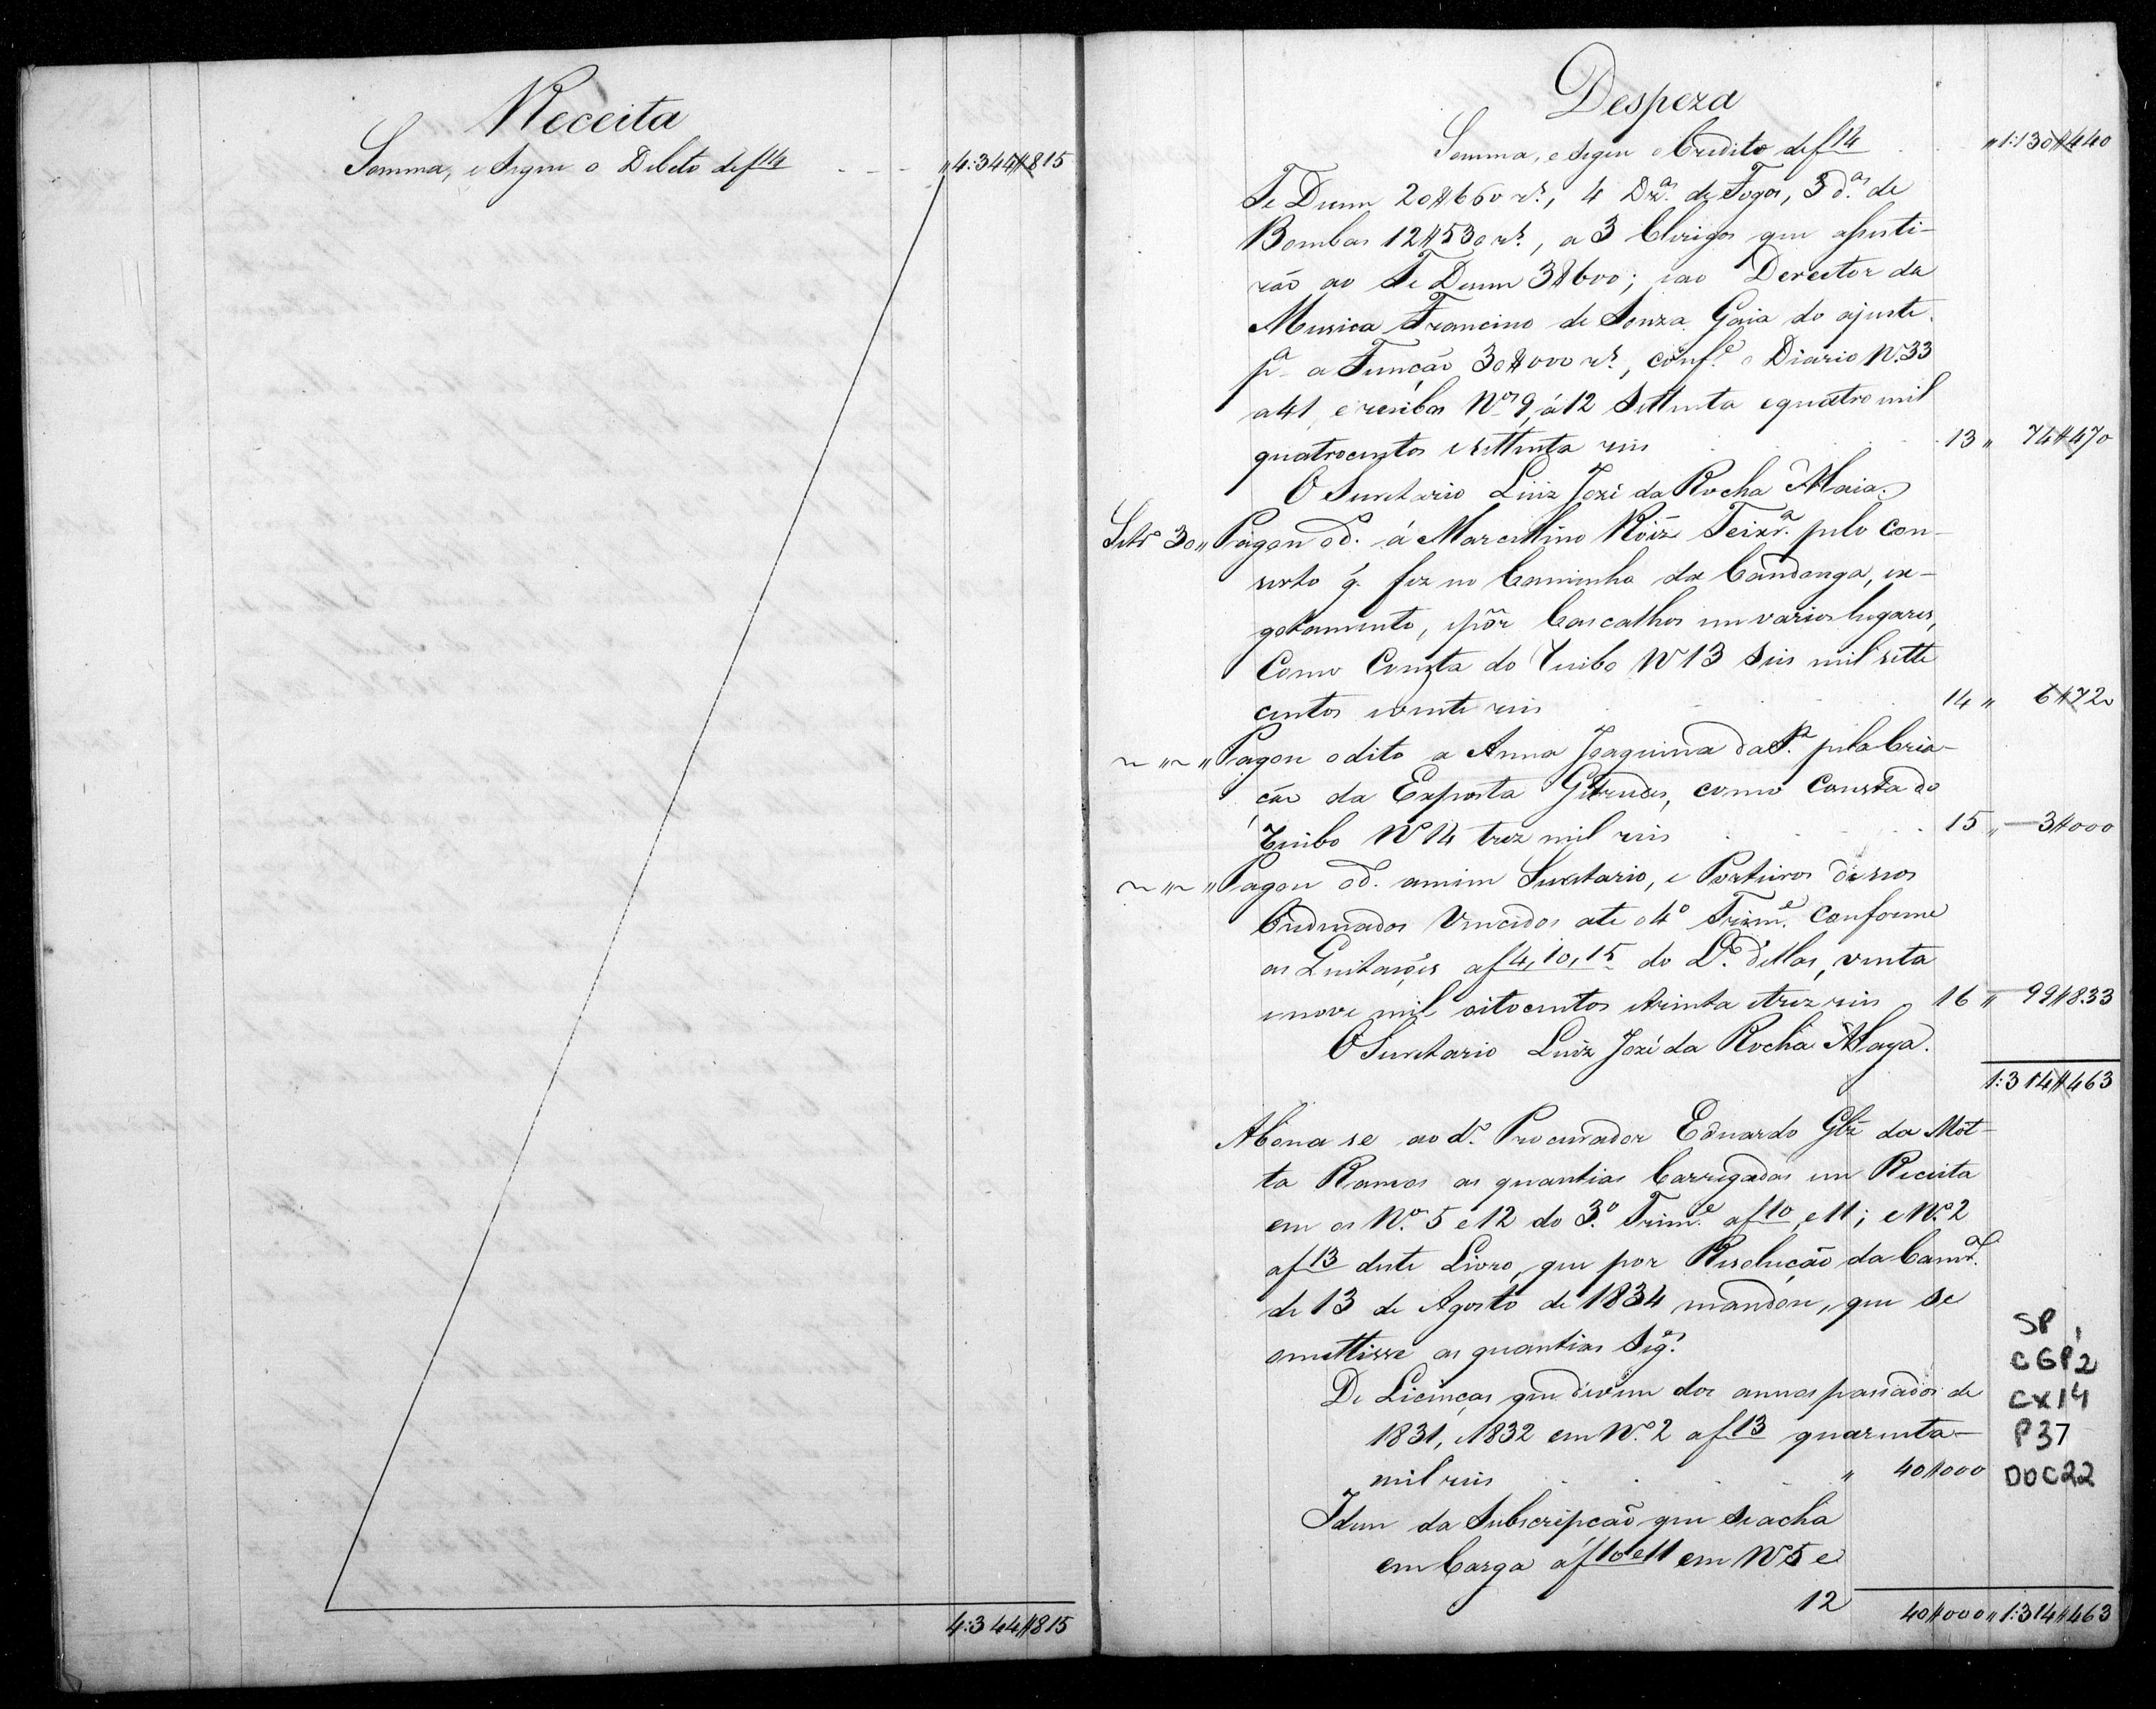 Receita
Somma, e segue o Debito de f 14 - - - " 4:344$815
4:344$815
Despeza
Somma, e segue o Credito de f 14 " 1:130$440
Te Deum 20$660 rs., 4 Dzas. de Fogos, 3 das. de
Bombas 12$530 rs., a 3 Clerigos que assisti-
rão ao Te Deum 3$600; e ao Derector da
Musica Francino de Souza Gaia do ajuste
pa. a Funcção 30$000 rs., confe. o Diario No. 33
a 41, e recibos Nos 9, á 12 settenta e quatro mil
quatrocentos e settenta reis 13 " 74$470
O Secretario Luiz Jozé da Rocha Maia.
Setbo 30 " Pagou o d. á Marcellino Roiz Teixra. pelo con-
serto q. fez no Caminho da Candonga, ex-
gotamento, e pôr Cascalhos em varios lugares,
Como Consta do Recibo No 13 seis mil sette
centos e vinte reis 14 " 6$720
~ " ~ " Pagou o dito a Anna Joaquina da Sa. pela Cria-
ção da Exposta Getrudes, como Consta do
Recibo No 14 trez mil reis 15 " 3$000
~ " ~ " Pagou o d. a mim Secretario, e Porteiros de seos
Ordenados Vencidos ate o 4o Trime. Conforme
as Quitaçoes a f 4, 10, 15 do Lo. d'ellas, venta
e nove mil oitocentos e trinta e trez reis 16 " 99$833
O Secretario Luiz Jozé da Rocha Maya.
1:314$463
Abona se ao do. Procurador Eduardo Glz da Mot-
ta Ramos as quantias Carregadas em Receita
em os Nos. 5 e 12 do 3o. Trime. a f 10 e 11; e No. 2
a f 13 deste Livro, que por Resolução da Camra.
de 13 de Agosto de 1834 mandou, que se
omettisse as quantias Siges.
De Licenças que devem dos annos passados de
1831, e 1832 em No. 2 a f 13 quarenta
mil reis " 40$000
Idem da Subscripcão que se acha
em Carga á f 10 e 11 em No 5 e
12
40$000 " 1:314$463
SP
CGP2
CX14
P37
DOC22